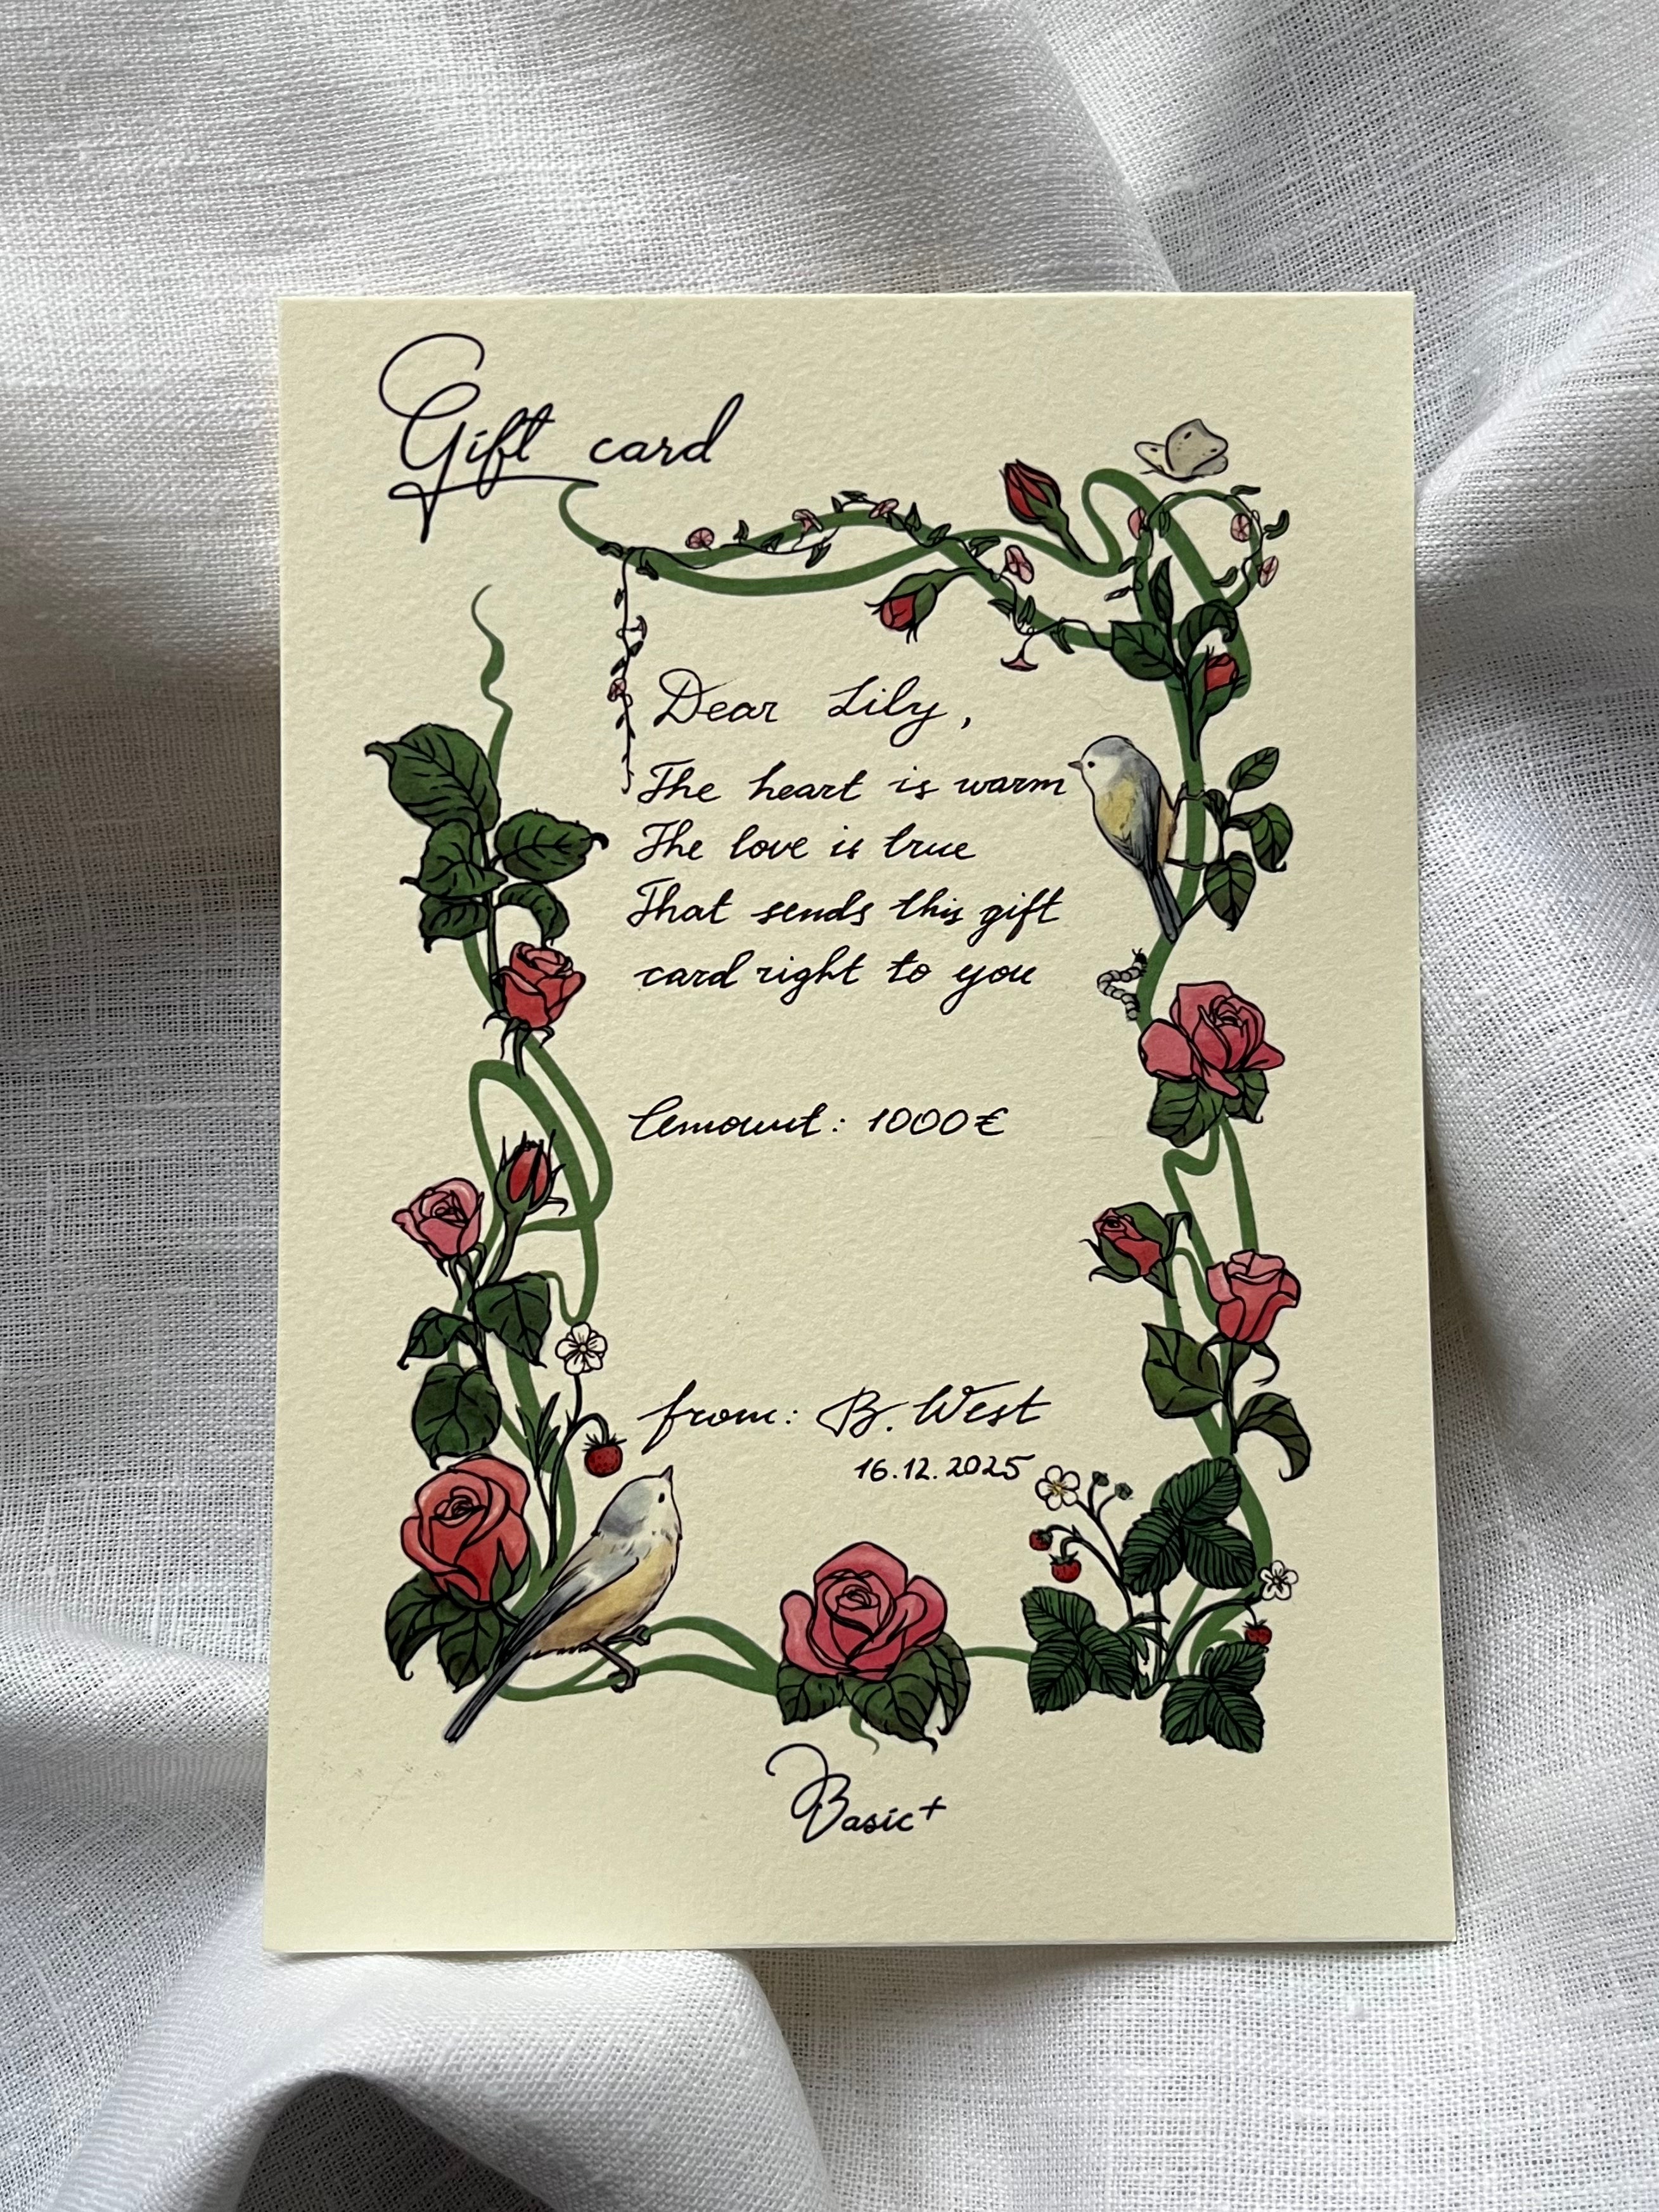 Gift card
Dear Lily,
The heart is warm
The love is true
That sends this gift
card right to you
Amount: 1000€
from: B. West
16.12.2025
Basic+